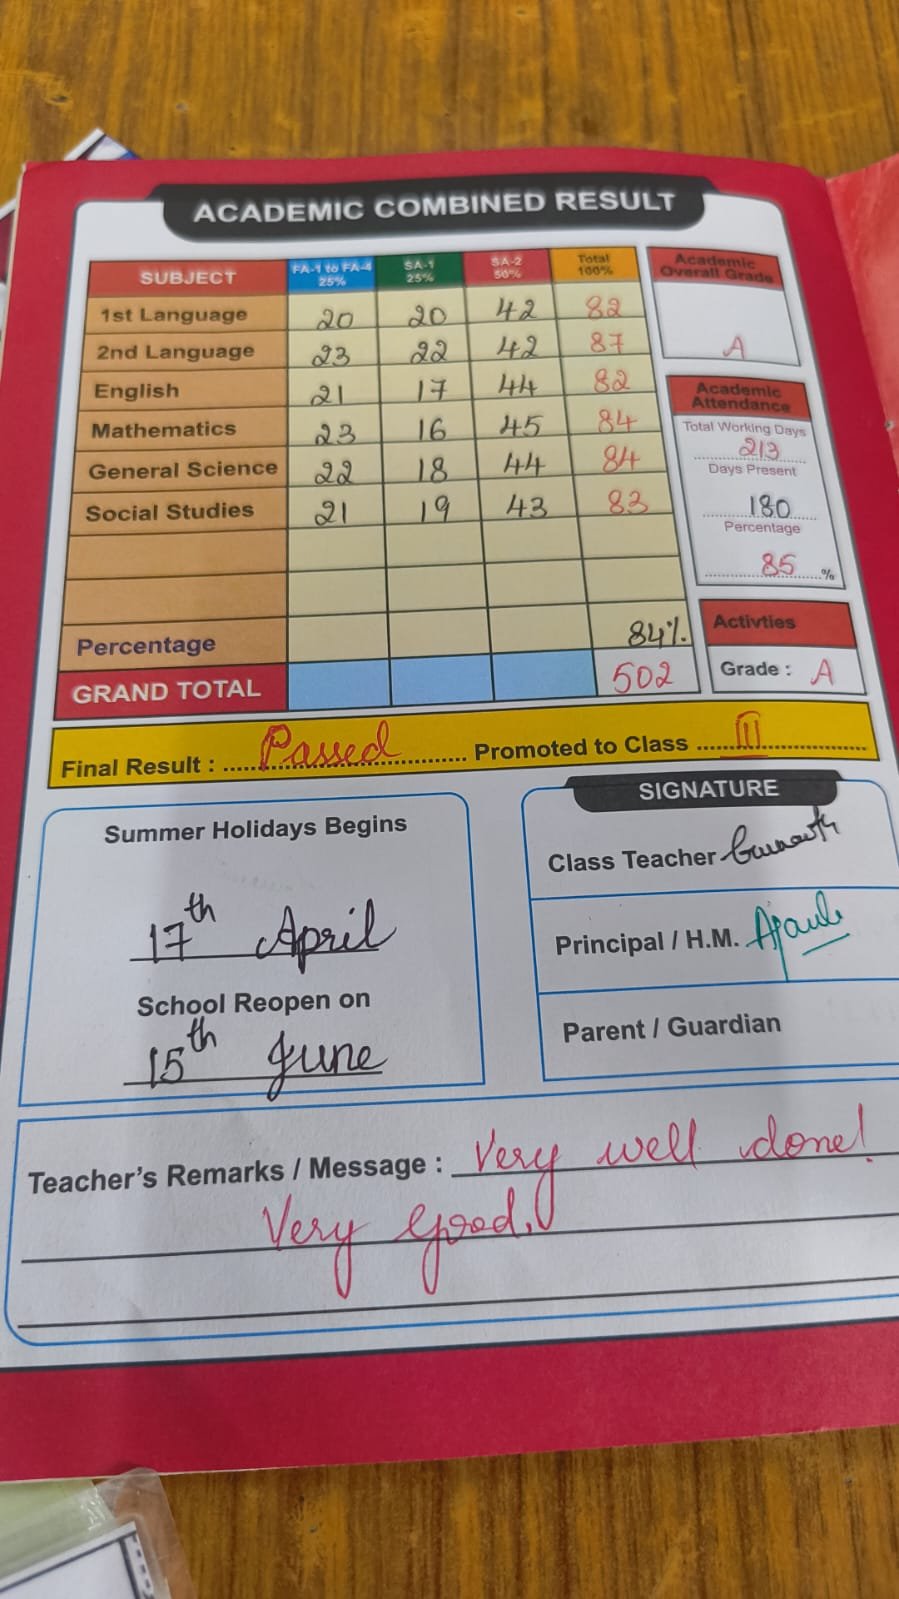 ACADEMIC COMBINED RESULT
SUBJECT FA-1 to FA-4 25% SA-1 25% SA-2 50% Total 100%
1st Language 20 20 42 82
2nd Language 23 22 42 87
English 21 17 44 82
Mathematics 23 16 45 84
General Science 22 18 44 84
Social Studies 21 19 43 83
Percentage 84%.
GRAND TOTAL 502
Academic
Overall Grade
A
Academic
Attendance
Total Working Days
213
Days Present
180
Percentage
85 %
Activties
Grade : A
Final Result : Passed Promoted to Class III
Summer Holidays Begins
17th April
School Reopen on
15th June
SIGNATURE
Class Teacher
Principal / H.M.
Parent / Guardian
Teacher's Remarks / Message : Very well done!
Very good.